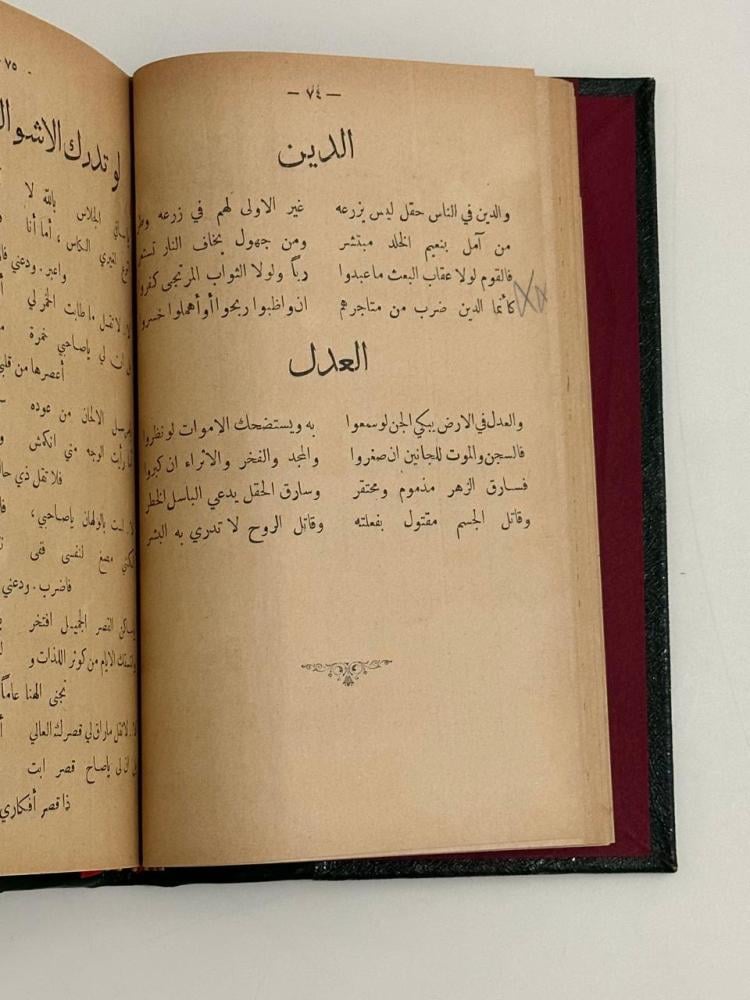 — ٧٤ —
الدين
والدين في الناس حقل ليس يزرعه غير الاولى لهم في زرعه وطر
من آمل بنعيم الخلد مبتشر ومن جهول يخاف النار تستعر
فالقوم لولا عقاب البعث ماعبدوا رباً ولولا الثواب المرتجى كفروا
كأنما الدين ضرب من متاجرهم ان واظبوا ربحوا أو أهملوا خسروا
العدل
والعدل في الارض يبكي الجن لو سمعوا به ويستضحك الاموات لو نظروا
فالسجن والموت للجانين ان صغروا والمجد والفخر والاثراء ان كبروا
فسارق الزهر مذموم ومحتقر وسارق الحقل يدعي الباسل الخطر
وقاتل الجسم مقتول بفعلته وقاتل الروح لا تدري به البشر
٧٥ -
لو تدرك
الجلاس بالله لا
لغيري الكاس ، أما أنا
واعبر . ودعني
لا تقل ما طابت الخمر لي
لي ياصاحبي خمرة
أعصرها من
الالحان من عوده
رأيت الوجه مني انكمش
فلا تقل ذي
لست بالولهان ياصاحبي ،
لنفسي ففى
فاضرب . ودعني
القصر الجميل افتخر
الايام من كوثر اللذات و
نجنى الهنا عاماً
لا تقل ماراق لي قصرك العالي
لي ياصاح قصر ابت
ذا قصر أفكاري